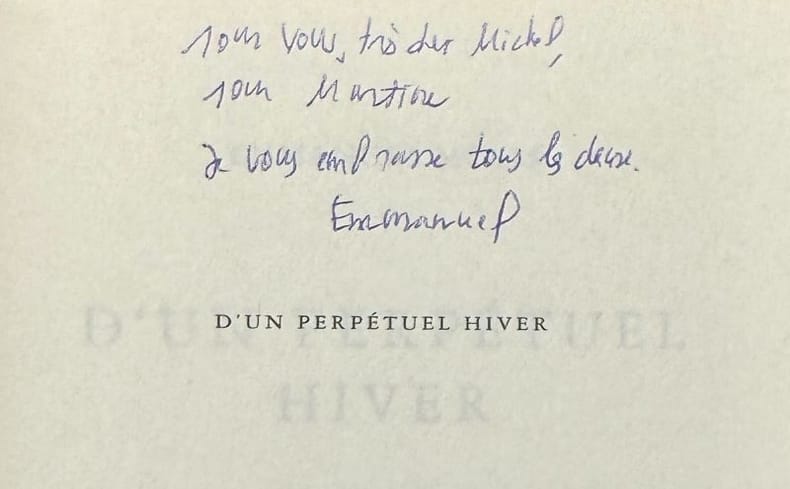 Pour vous, très cher Michel,
pour Martine
Je vous embrasse tous les deux.
Emmanuel
D'UN PERPÉTUEL HIVER
D'UN PERPÉTUEL
HIVER